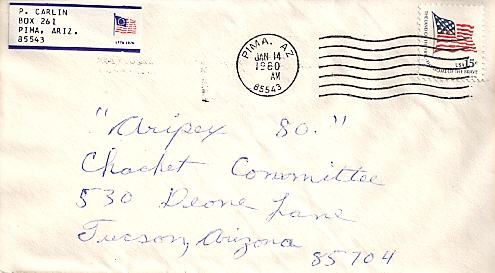 P. CARLIN
BOX 261
PIMA, ARIZ.
85543
1776-1976
PIMA, AZ
JAN 14
1980
AM
85543
USA 15c
HOME OF THE BRAVE
"Aripex 80."
Chachet Committee
530 Deone Lane
Tucson, Arizona
85704